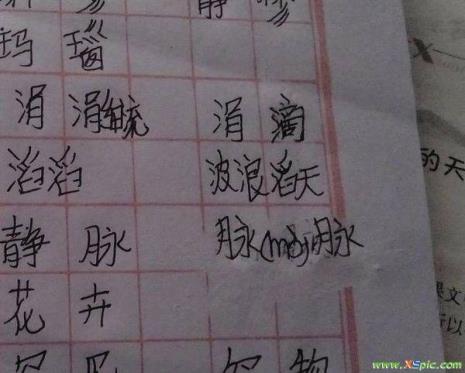 静
玛 瑙
涓 涓细流 涓 滴
滔滔 波浪滔天
静 脉 脉(mò)脉
花 卉
的天
X
课文
所以
物
www.XSpic.com